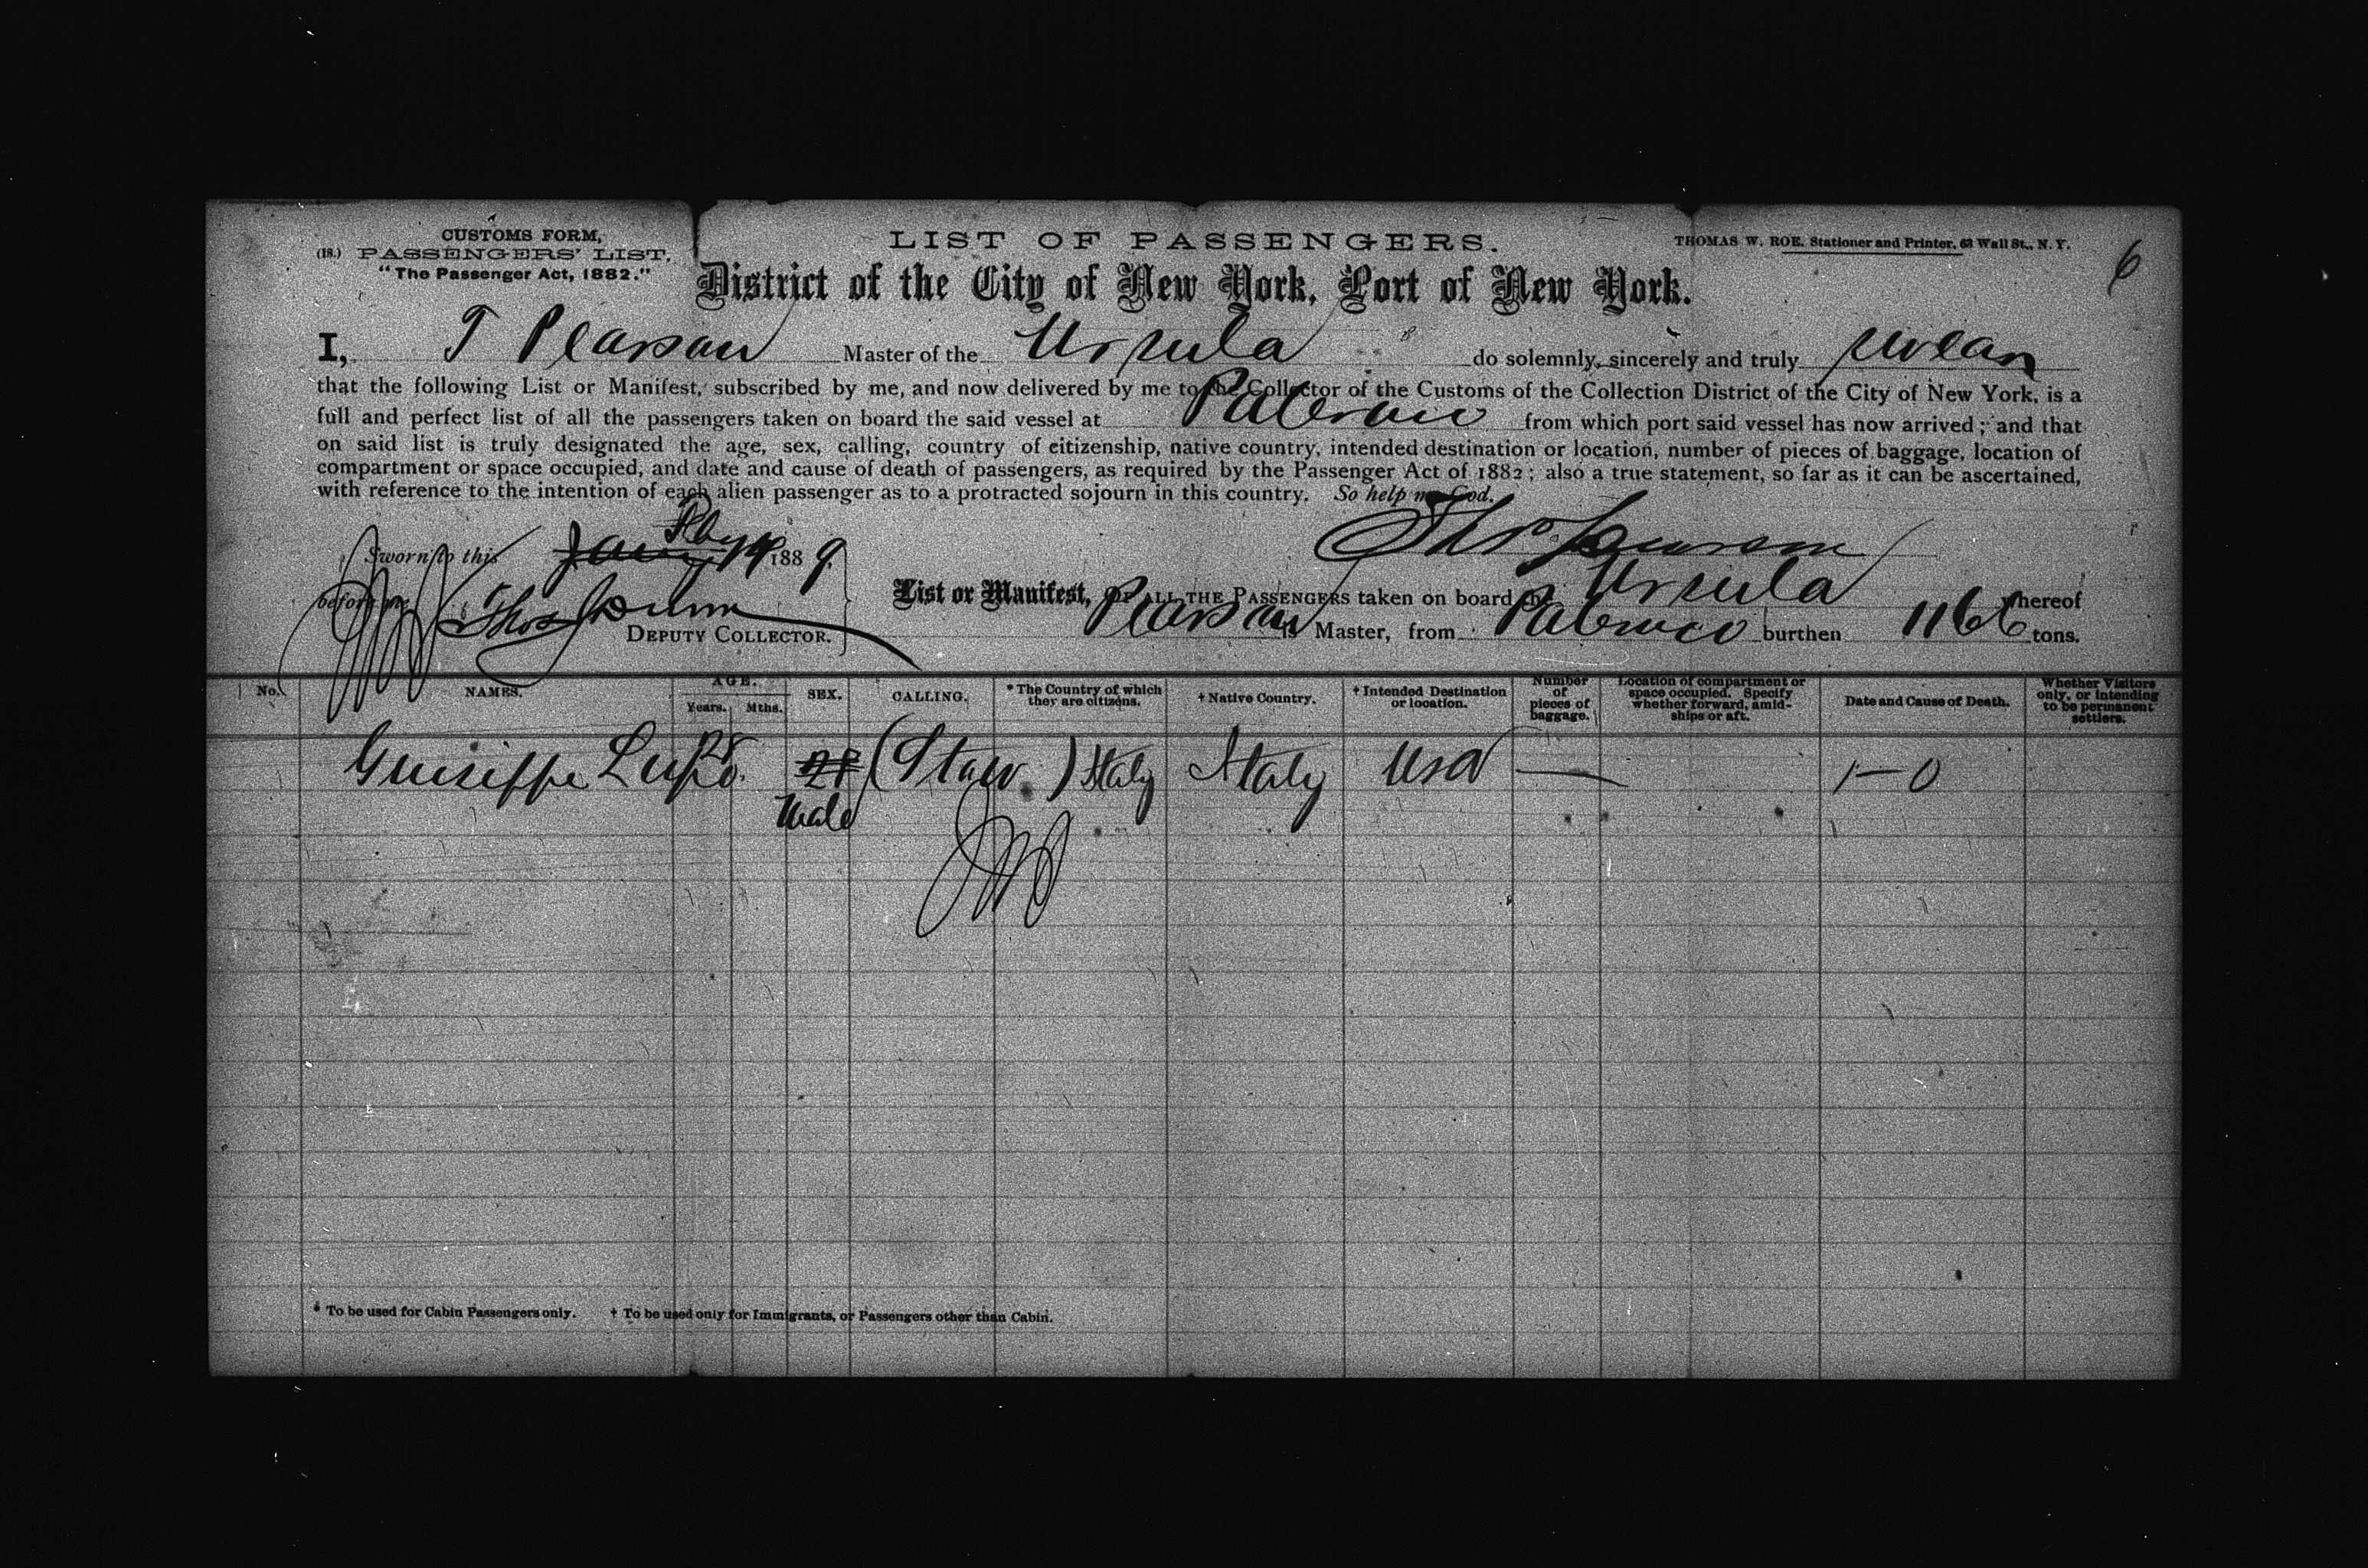 CUSTOMS FORM,
(18.) PASSENGERS' LIST,
"The Passenger Act, 1882."
LIST OF PASSENGERS.
THOMAS W. ROE, Stationer and Printer, 63 Wall St., N. Y.
6
District of the City of New York, Port of New York.
I, T Pearson Master of the Ursula do solemnly, sincerely and truly swear
that the following List or Manifest, subscribed by me, and now delivered by me to the Collector of the Customs of the Collection District of the City of New York, is a
full and perfect list of all the passengers taken on board the said vessel at Palermo from which port said vessel has now arrived; and that
on said list is truly designated the age, sex, calling, country of citizenship, native country, intended destination or location, number of pieces of baggage, location of
compartment or space occupied, and date and cause of death of passengers, as required by the Passenger Act of 1882; also a true statement, so far as it can be ascertained,
with reference to the intention of each alien passenger as to a protracted sojourn in this country. So help me God.
Sworn to this 1889
before me Thos Dunn
DEPUTY COLLECTOR.
Thos Pearson
List or Manifest, OF ALL THE PASSENGERS taken on board Ursula whereof
Pearson is Master, from Palermo burthen 1166 tons.
No. NAMES. AGE. Years. Mths. SEX. CALLING. * The Country of which they are citizens. † Native Country. † Intended Destination or location. Number of pieces of baggage. Location of compartment or space occupied. Specify whether forward, amidships or aft. Date and Cause of Death. Whether Visitors only, or intending to be permanent settlers.
Guiseppe Lupo 28 Male (Stow) Italy Italy USA — 1—0
* To be used for Cabin Passengers only. † To be used only for Immigrants, or Passengers other than Cabin.